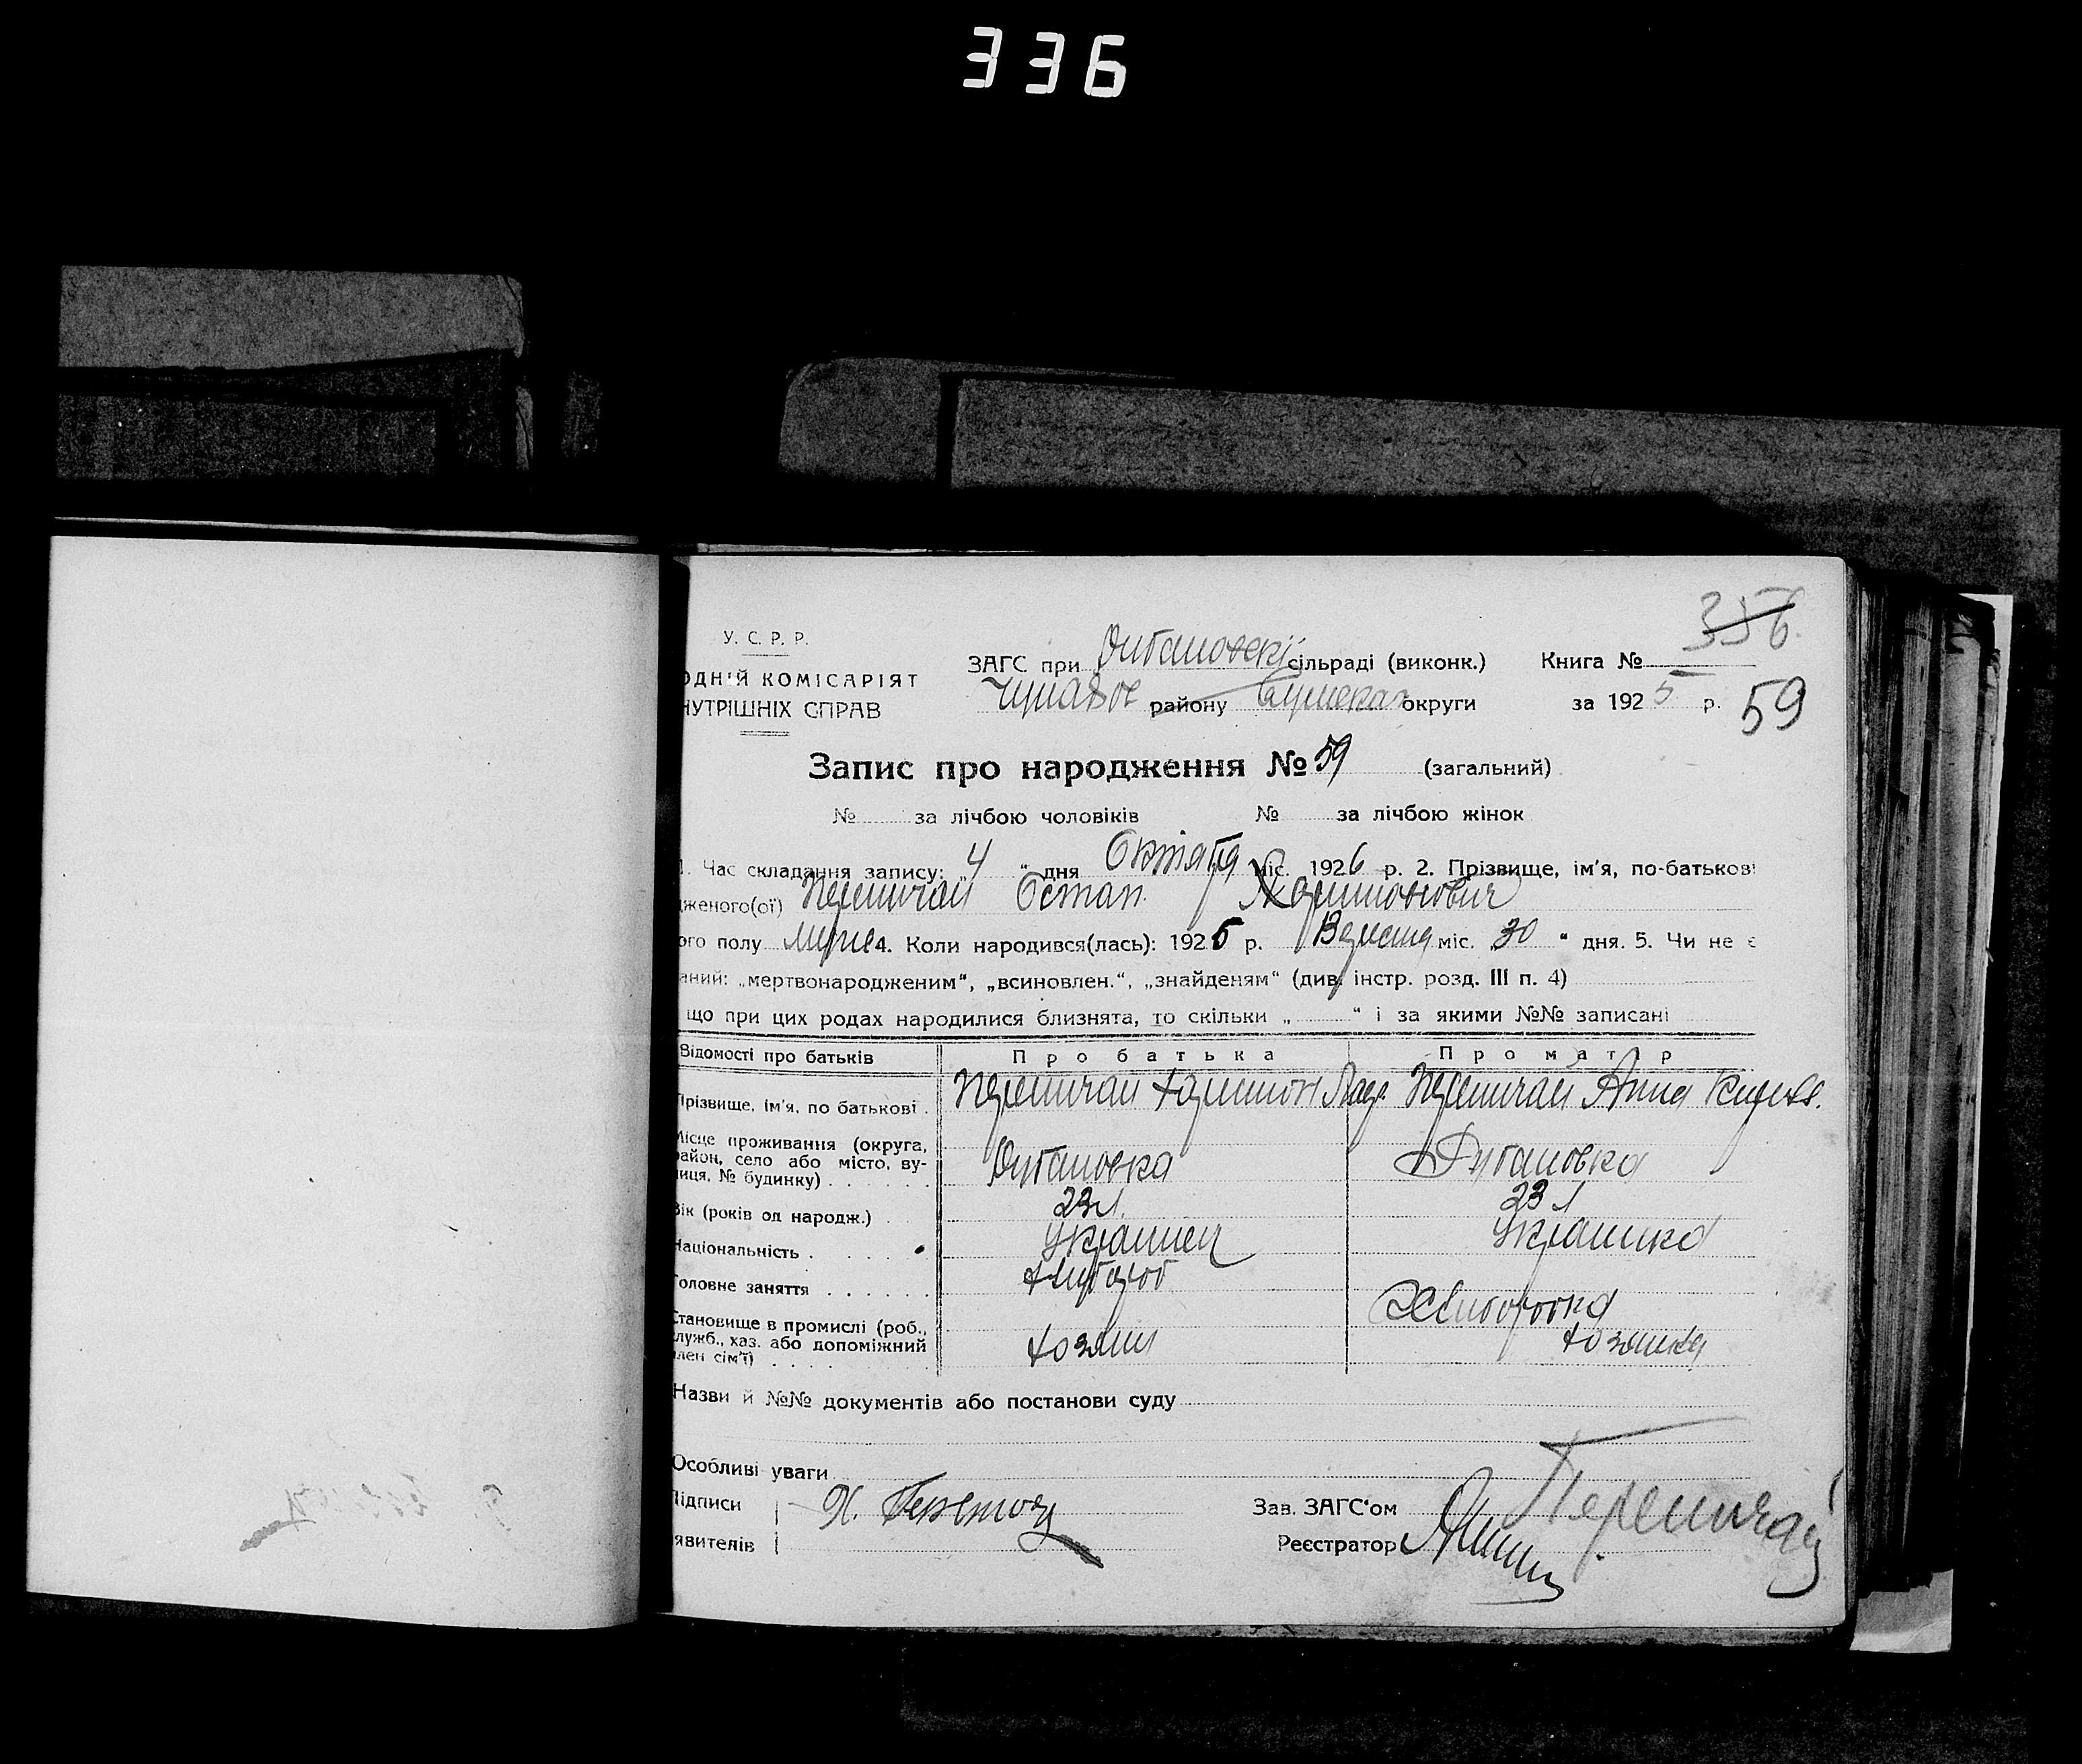 336
356
У. С. Р. Р.
ОДНІЙ КОМІСАРІЯТ
НУТРІШНІХ СПРАВ
ЗАГС при сільраді (виконк.) Книга №
району Сумская округи за 1925 р. 59
Запис про народження № 59 (загальний)
№ за лічбою чоловіків № за лічбою жінок
1. Час складання запису: „4“ дня Октября міс. 1926 р. 2. Прізвище, ім'я, по-батькові
дженого(ої) Перепичай Остап Харитонович
ого полу муже 4. Коли народився(лась): 1926 р. міс. „30“ дня. 5. Чи не є
аний: „мертвонародженим“, „всиновлен.“, „знайденям“ (див. інстр. розд. III п. 4)
що при цих родах народилися близнята, то скільки „ “ і за якими №№ записані
Відомості про батьків Про батька Про матір
Прізвище, ім'я, по батькові . Перепичай Харитон Перепичай Анна
Місце проживання (округа,
район, село або місто, ву-
лиця, № будинку) . . . . . .
Вік (років од народж.) . 23 л. 23 л
Національність . . . . Украинец Украинка
Головне заняття . . . . . . Хлибороб Хлиборобка
Становище в промислі (роб.,
служб., хаз. або допоміжний
член сім'ї) . . . . хозяин хозяйка
Назви й №№ документів або постанови суду
Особливі уваги
Підписи Зав. ЗАГС'ом Перепичай
явителів Реєстратор